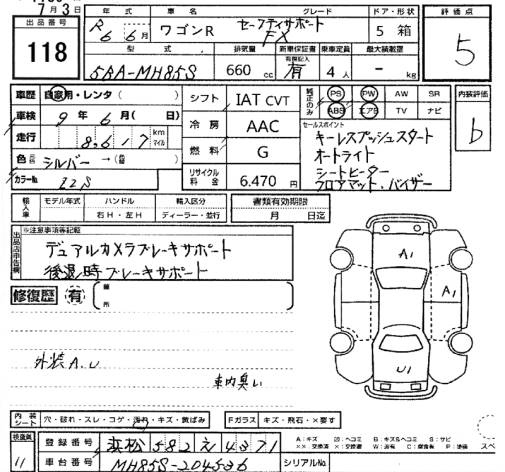 7月3日
出品番号 118
年式 R6 6月
車名 ワゴンR
グレード セーフティサポート FX
ドア・形状 5 箱
評価点 5
型式 5BA-MH85S
排気量 660 cc
新車保証書 有償記入 有
乗車定員 4人
最大積載量 - kg
車歴 自家用・レンタ( )
車検 9年6月( 日)
走行 8,617 km マイル
色 シルバー→( )
カラーNo. ZZS
シフト IAT CVT
冷房 AAC
燃料 G
リサイクル料金 6.470円
純正のみ PS PW AW SR
ABS エアB TV ナビ
内装評価 b
セールスポイント
キーレスプッシュスタート
オートライト
シートヒーター
フロアマット、バイザー
輸入車 モデル年式 ハンドル 輸入区分
右H・左H ディーラー・並行
書類有効期限
月 日迄
出品店申告欄 ※注意事項等記載
デュアルカメラブレーキサポート
後退時ブレーキサポート
修復歴 有 箇所
A1
A1
U1
外装A.U
車内臭い
内装シート 穴・破れ・スレ・コゲ・汚れ・キズ・黄ばみ
Fガラス キズ・飛石・×要す
検査員 11
登録番号 浜松 582 え 4371
車台番号 MH85S-204536
シリアルNo.
A:キズ